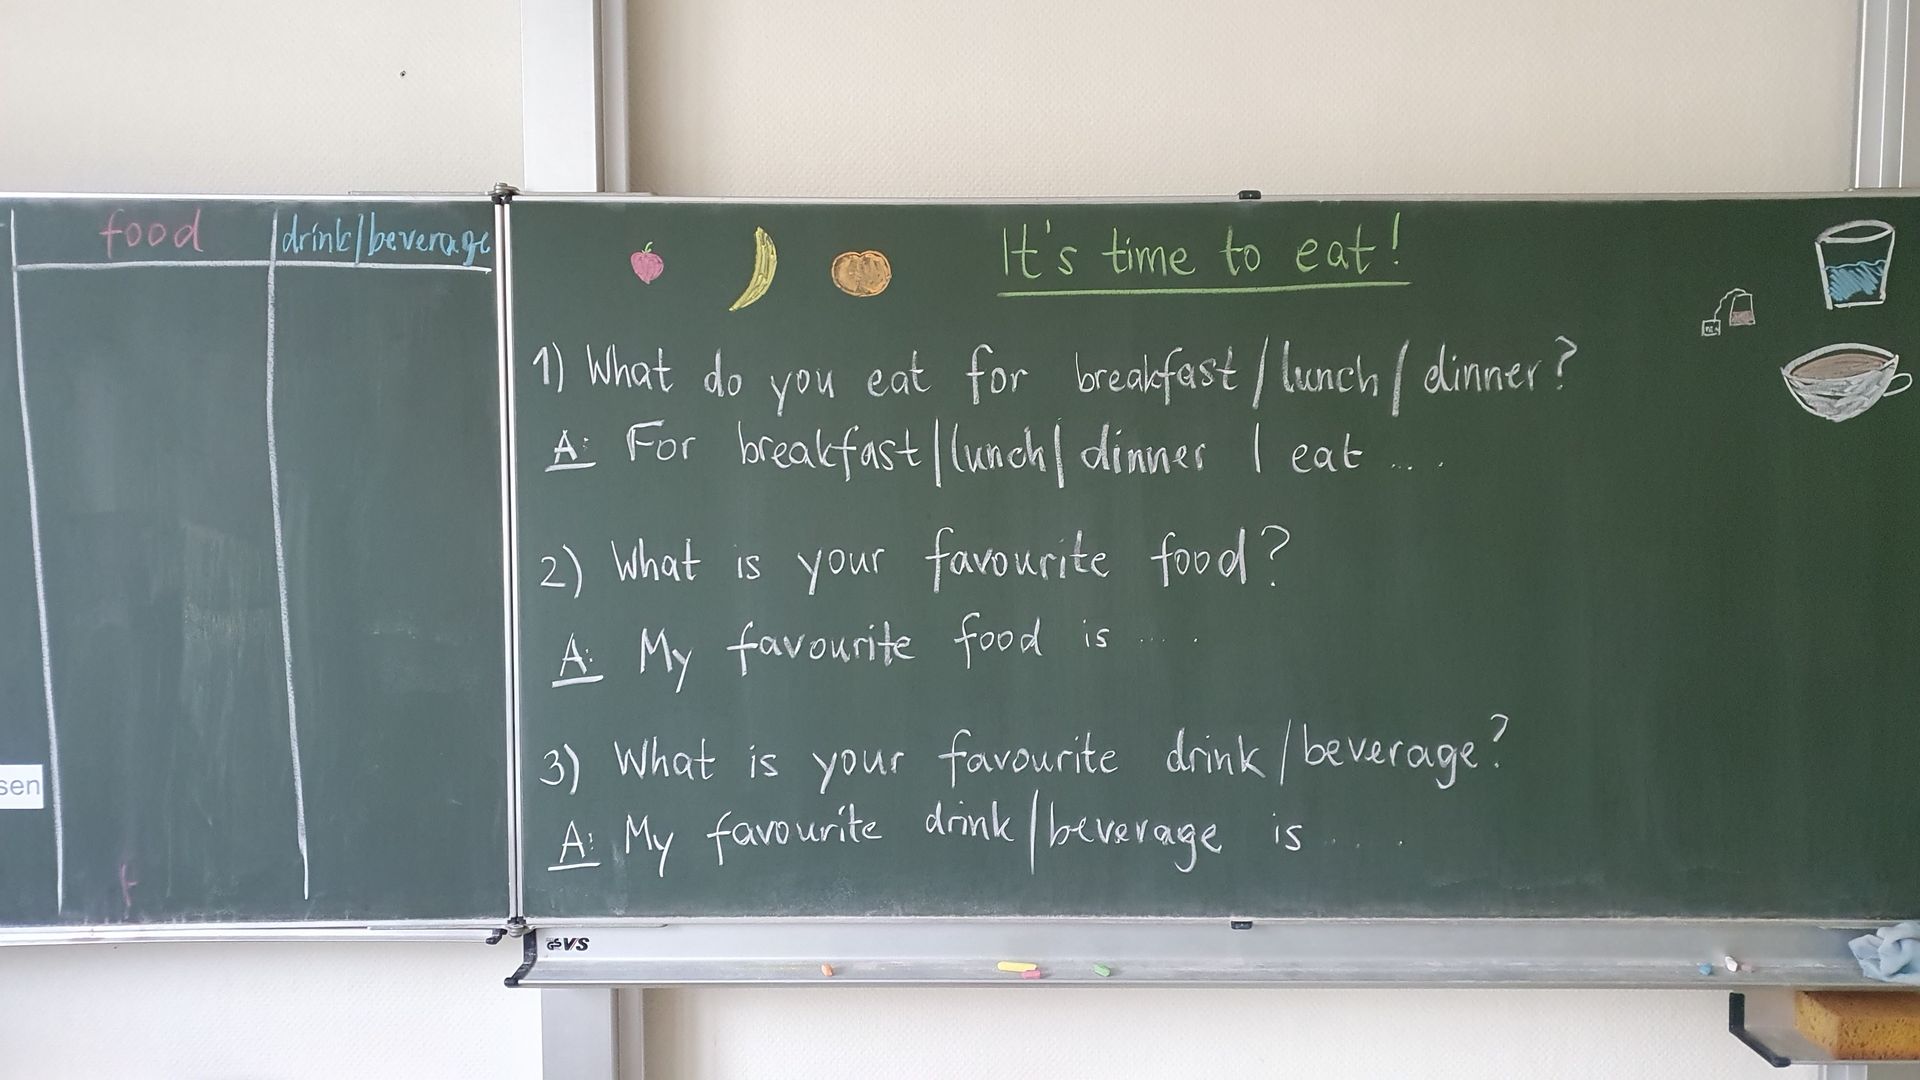 food
drink/beverage
It's time to eat!
1) What do you eat for breakfast/lunch/dinner?
A: For breakfast/lunch/dinner I eat ....
2) What is your favourite food?
A: My favourite food is ....
3) What is your favourite drink/beverage?
A: My favourite drink/beverage is ....
sen
VS